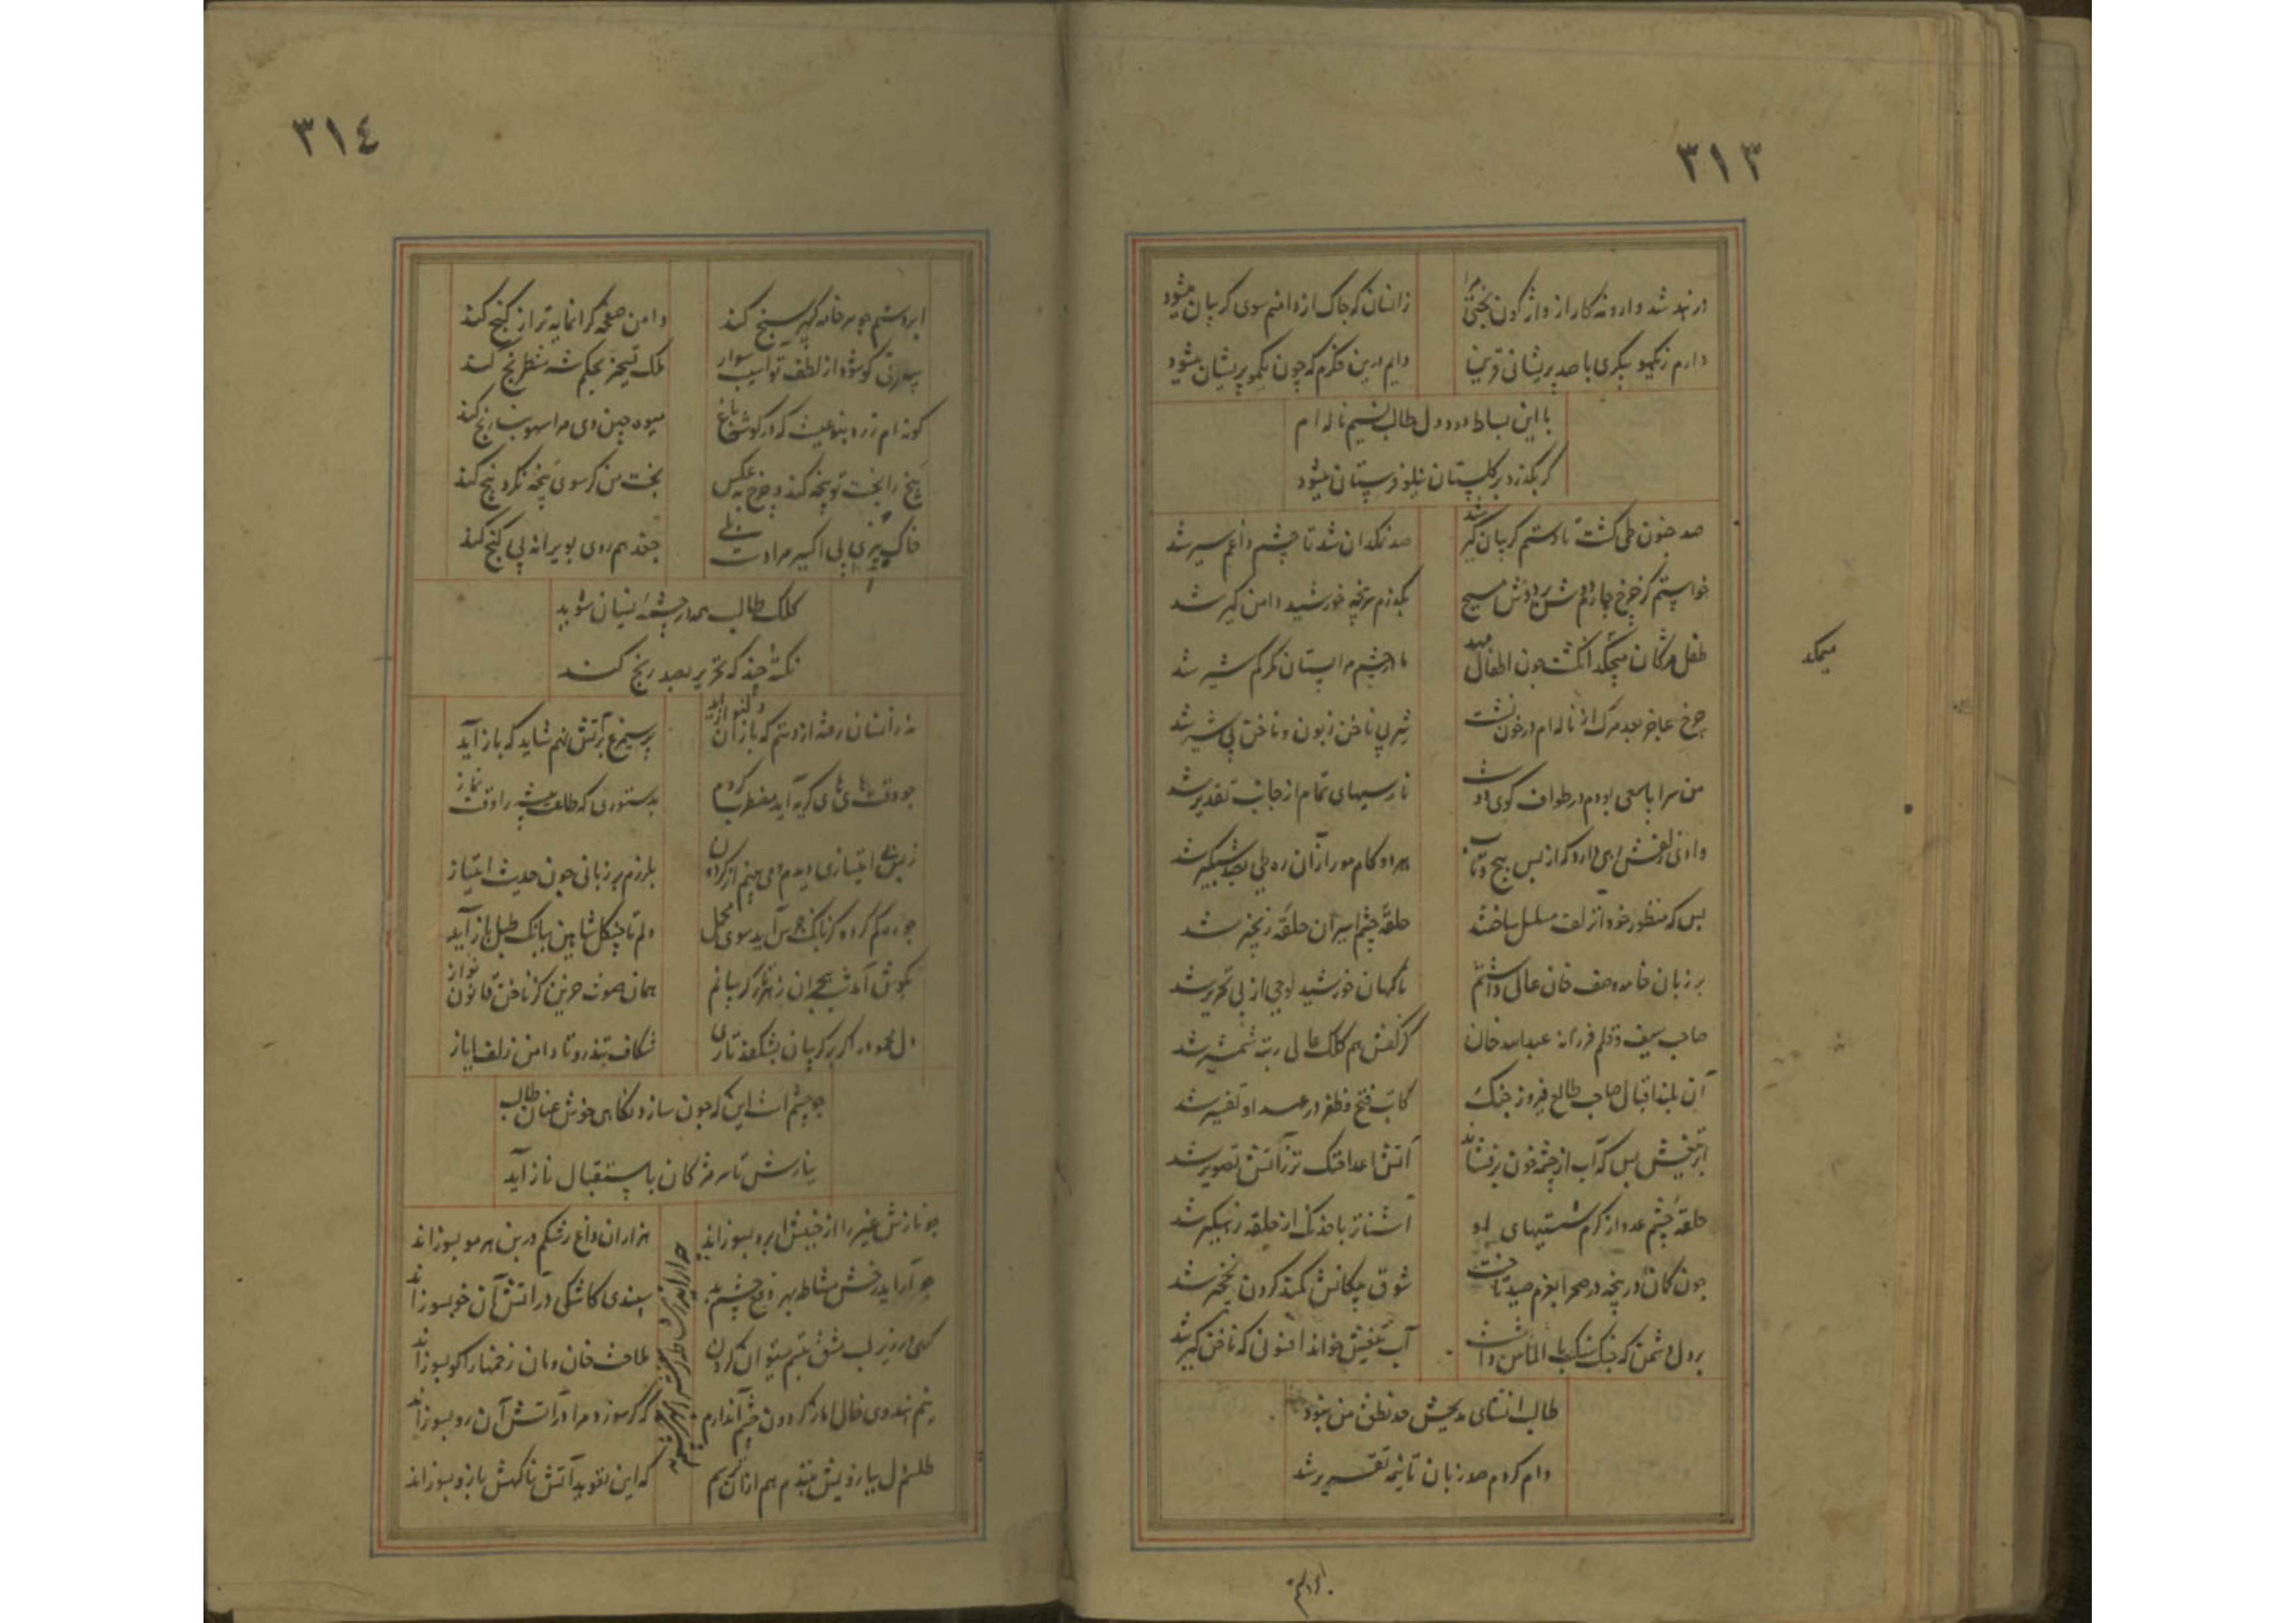 ٣١٣
در بند شد وارونه کار از واژکون بختی مرا
زانسان که چاک از دامنم سوی کریبان میشود
دارم ز کیسو پیکری با صد پریشانی قرین
دایم درین فکرم که چون یکمو پریشان میشود
با این بساط درد دل طالب نسیم ناله ام
کر بکذرد بر کلستان نیلوفرستان میشود
صد جنون طی کشت تا دستم کریبان کیر شد
صد نمکدان شد تا چشم داغم سیر شد
خواستم کز چرخ چارم دوش بر دوش مسیح
بکذرم سرپنجه خورشید دامن کیر شد
طفل مژکان میچکد انکشت چون اطفال مهد
میمکد
مادر چشم مرا پستان مکر کم شیر شد
چرخ عاجز بعد مرک از ناله ام در خون نشست
شیر بی ناخن زبون و ناخن بی شیر شد
من سراپا سعی بودم در طواف کوی دوست
نارسیهای تمام از جانب تقدیر شد
وادی زلفش رهی دارد که از بس پیچ و تاب
بهر دو کام مور ازان ره طی بصد شبکیر شد
بس که منظور خود از زلف مسلسل ساختند
حلقه چشم اسیران حلقه زنجیر شد
بر زبان خامه وصف خان عالی داشتم
ناکهان خورشید لوحی از پی تحریر شد
صاحب سیف و قلم فرزانه عبدالله خان
کز کفش هم کلک عالی رتبه شمشیر شد
آن بلند اقبال صاحب طالع فیروز جنک
کاب فتح و ظفر در عهد او تفسیر شد
از تیغش بس که آب از چشمه خون برفشاند
آتش اعدا خنک تر ز آتش تصویر شد
حلقه چشم عدو از کرم شستیهای او
آشناتر با خدنک از حلقه زهکیر شد
چون کمان در پنجه در صحرا بعزم صید تاخت
شوق پیکانش کمند کردن نخجیر شد
بر دل دشمن که جنک سنک با الماس داشت
آب تیغش خواند افسونی که ناخن کیر شد
طالب انشای مدیحش حد نطق من نبود
وام کردم صد زبان تا نیمه تقریر شد
٣١٤
ابر دستم چو سر خامه کهر سنج کند
دامن صفحه کرانمایه تر از کنج کند
بیدقی کو شود از لطف تو اسب سوار
ملک تسخیر بحکم شه شطرنج کند
کونه ام زرد بنوعیست که در کوشه باغ
میوه چین دی مرا سهو بنارنج کند
یخ را بخت تو پخته کند و چرخ به عکس
بخت من کر سوی پخته نکرد یخ کند
خاک بیزی پی اکسیر مرادست ولی
جغد هم روی بویرانه پی کنج کند
کلک طالب بسر چشمه نیسان شوید
نکته چند که تحریر بصد رنج کند
نه زانسان رفته از دستم که باز آن دلنواز آید
پر سیمرغ بر آتش نهم شاید که باز آید
چو وقت های های کریه آید مضطرب کردم
بدستوری که طاعت پیشه را وقت نماز
ز بس بی امتیازی دیدم می بینم از کردون
بلرزم بر زبانی چون حدیث امتیاز
چو ره کم کرده کز بانک جرس آید سوی محمل
دلم تا چنکل شاهین ببانک طبل باز آید
بکوش آمد شب هجران ز هر تار کریبانم
همان صوت حزین کز ناخن قانون نواز
دل محمود را کر بر کریبان بشکفد تاری
شکافد تند رو تا دامن زلف ایاز
چو چشم است این که چون سازد نکاهی خوش عنان طالب
بنازش تا سر مژکان باستقبال ناز آید
چو نازش غیر را از جنبش ابرو بسوزاند
هزاران داغ رشکم در بن هر مو بسوزاند
چو آراید رخش مشاطه بهر دفع چشم بد
سپندی کاشکی در آتش آن خو بسوزاند
کسی در زیر لب مشق تبسم میتوان کردن
که کر سوزد مرا در آتش آن رو بسوزاند
که این تعویذ آتش ناکهش بازو بسوزاند